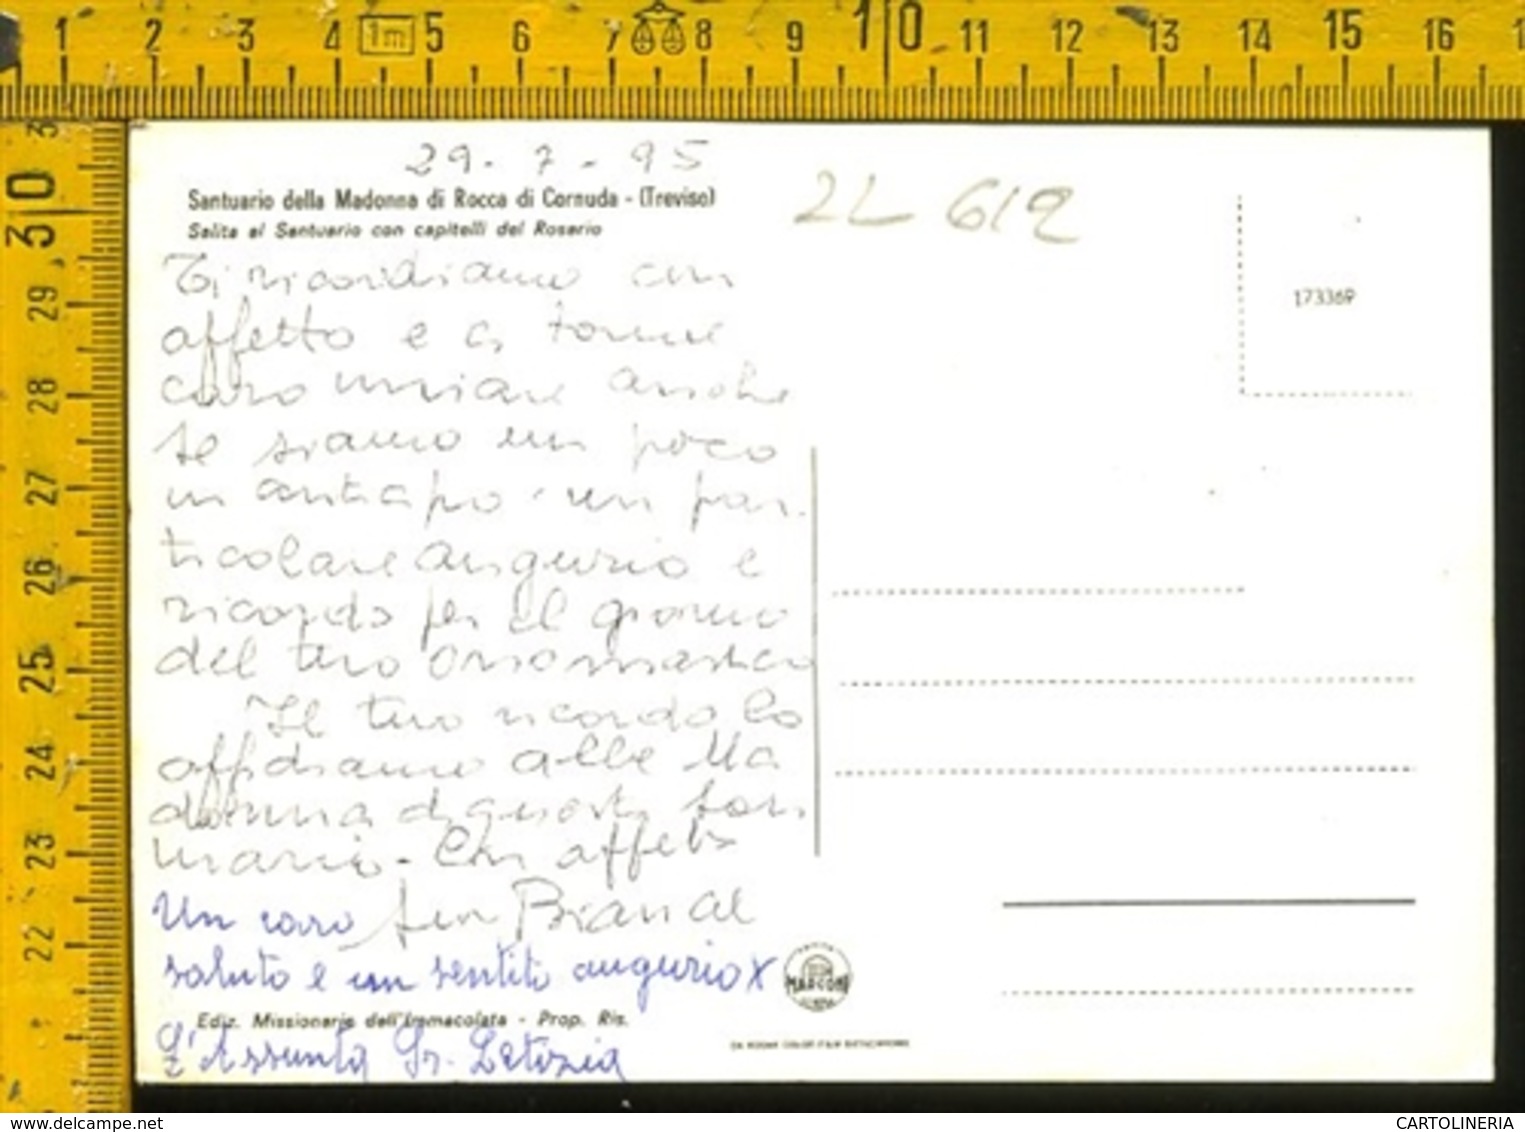 1 2 3 4 1m 5 6 7 8 9 10 11 12 13 14 15 16
30
29
28
27
26
25
24
23
22
29-7-95
Santuario della Madonna di Rocca di Cornuda - (Treviso)
Salita al Santuario con capitelli del Rosario
2L 612
173369
Ti ricordiamo con
affetto e ci
caro anche
se siamo un poco
in anticipo un par-
ticolare augurio e
ricordo per il giorno
del tuo onomastico
Il tuo ricordo lo
affidiamo alla Ma
donna di questo San
Con affetto
Un caro
saluto e un sentito augurio x
MARCONI
Ediz. Missionarie dell'Immacolata - Prop. Ris.
L'Assunta Sr. Letizia
www.delcampe.net
CARTOLINERIA